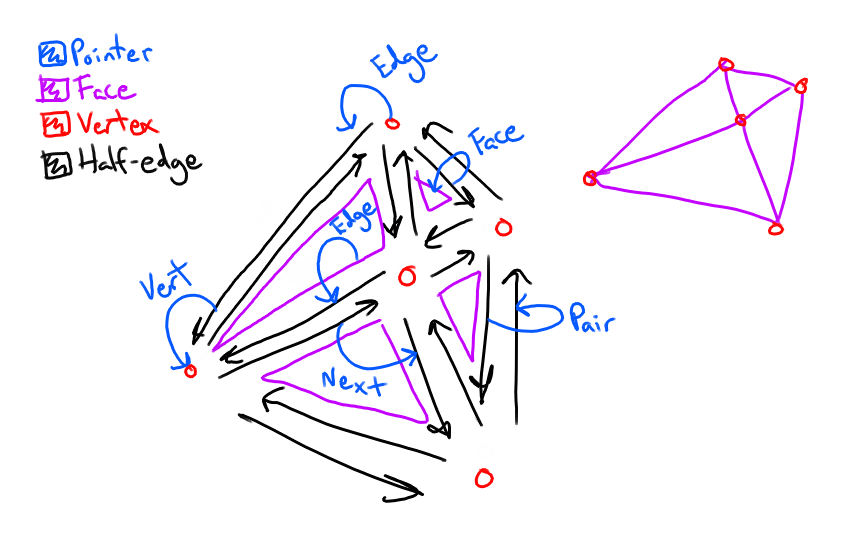 Pointer
Face
Vertex
Half-edge
Edge
Face
Edge
Vert
Pair
Next